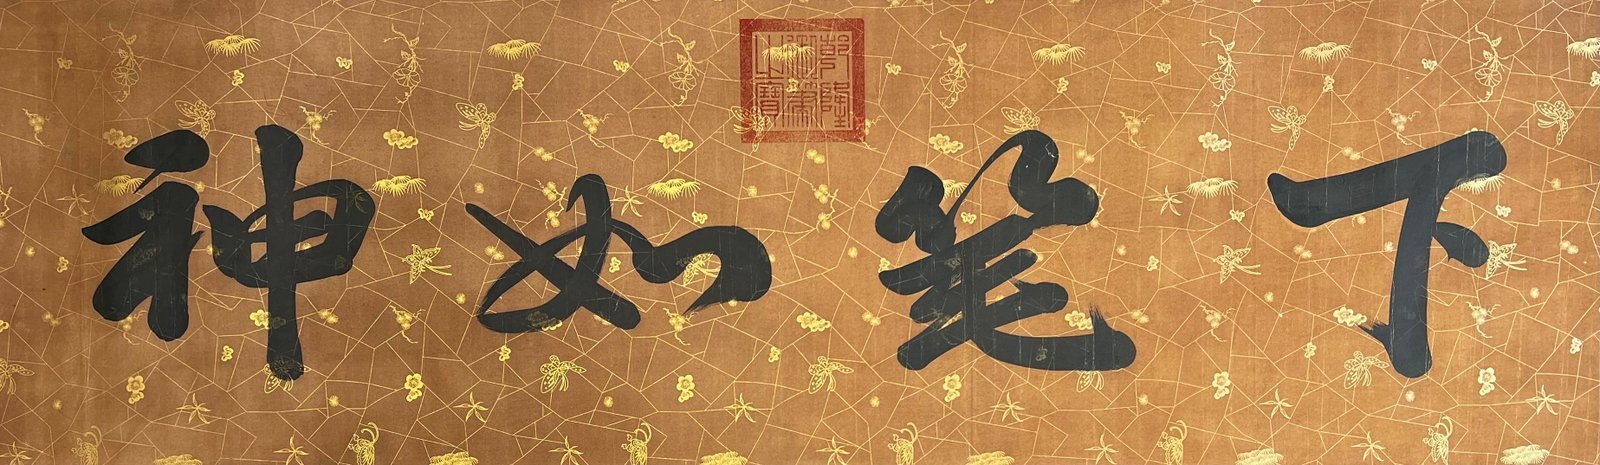 下笔如神
乾隆御筆之寶